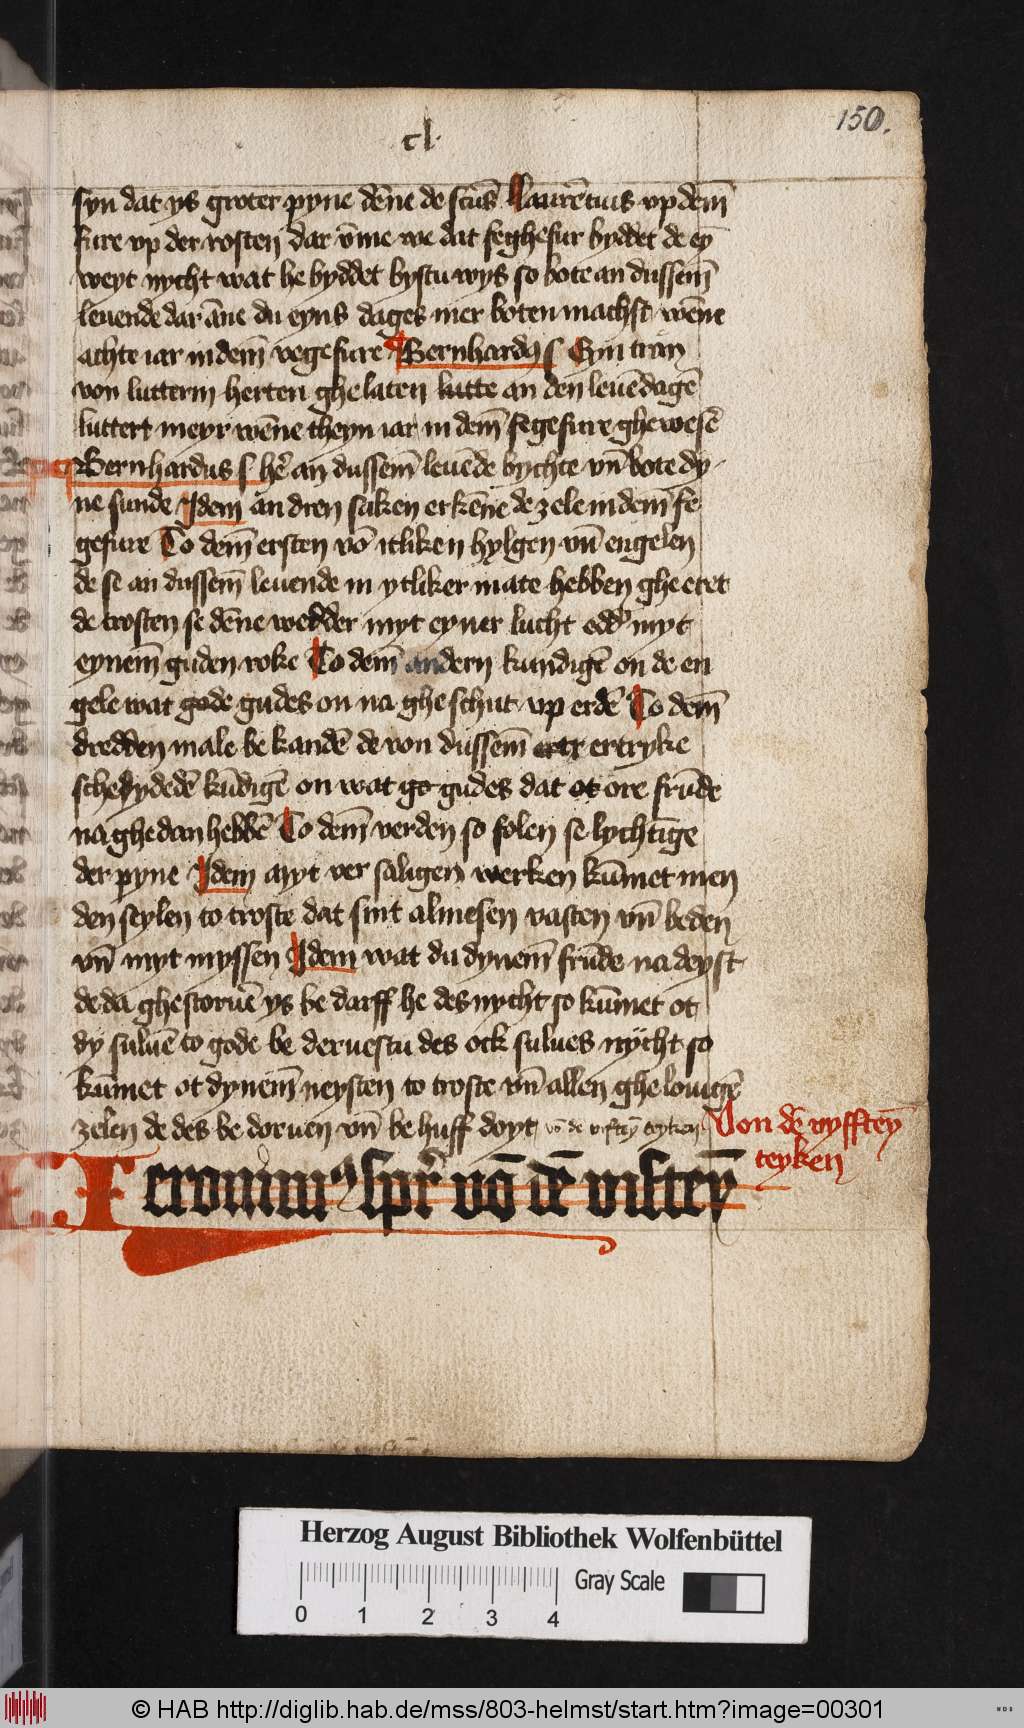 150.
cl.
syn dat ys groter pyne dēne de sctūs laurētius vp dem̄
fure vp der rosten dar v̄me we dat feghefur byddet de ey̅
weyt nycht wat he byddet bystu wys so bote an dussem̄
leuende dar āne du eyns dages mer boten machst wēne
achte iar in dem̄ vegefure Bernhardꝰ s Eyn tran
von lutterm herten ghelaten lutte an den leuēdagē
luttert meyr wēne theyn iar in dem̄ fegefure ghewesē
Bernhardus s hē an dussem̄ leuēde bychte vn̄ bote dy
ne sunde Idem an dren saken erkēne de zele in dem̄ fe
gefure To dem̄ ersten vō itliken hylgen vn̄ engelen
de se an dussem̄ leuende in ytliker mate hebben ghe eret
de trosten se dēne wedder myt eyner lucht edd' myt
eynem̄ guden roke To dem̄ andern kundigē on de en
gele wat gode gudes on na ghe schut vp erdē To dem̄
dredden male be kandē de von dussem̄ ertr ertryke
schedydedē kūdigē on wat go gudes dat ot ore frūde
na ghedan hebbē To dem̄ verden so folen se lychtīge
der pyne Idem myt ver saligen werken kūmet men
den seylen to troste dat sint almesen vasten vn̄ beden
vn̄ myt myssen Idem wat du dynem̄ frūde na deyst
de da ghestoruē ys be darff he des nycht so kūmet ot
dy suluē to gode be deruestu des ock sulues nycht so
kūmet ot dynem̄ neysten to troste vn̄ allen ghe louigē
zelen de des be doruen vn̄ be huff doyt vō de viftey̅ teyken
Von dē vyfftey̅
teyken
Ieronimꝰ spr̄ vō dē viftey̅
Herzog August Bibliothek Wolfenbüttel
Gray Scale
0 1 2 3 4
© HAB http://diglib.hab.de/mss/803-helmst/start.htm?image=00301